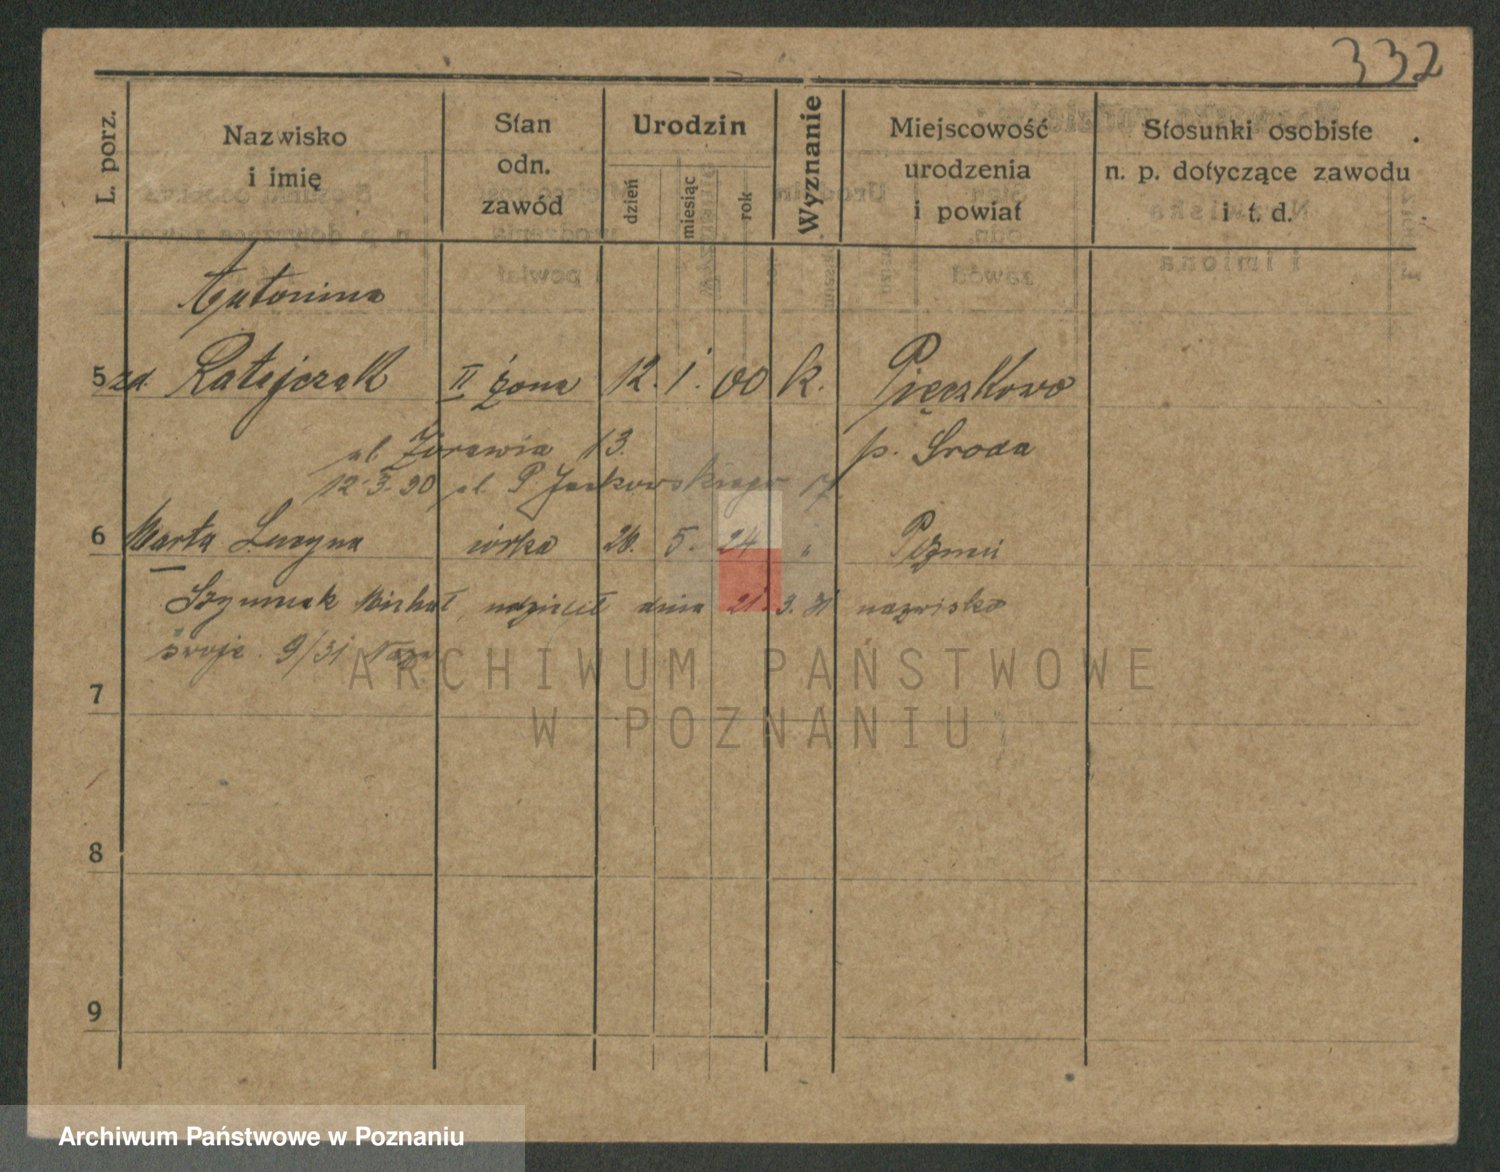 332
L. porz.
Nazwisko
i imię
Stan
odn.
zawód
Urodzin
dzień
miesiąc
rok
Wyznanie
Miejscowość
urodzenia
i powiat
Stosunki osobiste
n. p. dotyczące zawodu
i t. d.
Antonina
5 zd. Ratajczak II żona 12. 1. 00 k. Pięczkowo
ul Żórawia 13. p. Sroda
12.3.30 ul. P Jackowskiego 17
6 Marta córka 26. 5. 24 "
Szymczak Michał udzielił dnia 21. 3. 31 nazwisko
swoje. 9/31
7
8
9
ARCHIWUM PAŃSTWOWE
W POZNANIU
Archiwum Państwowe w Poznaniu